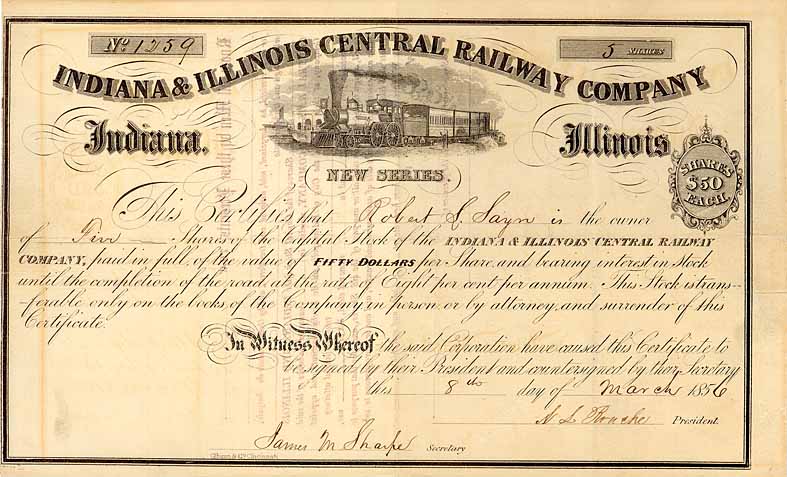 No. 1259
5 SHARES
INDIANA & ILLINOIS CENTRAL RAILWAY COMPANY
Indiana. Illinois
NEW SERIES.
SHARES
$50
EACH
This Certifies that Robert S. is the owner
of Shares of the Capital Stock of the INDIANA & ILLINOIS CENTRAL RAILWAY
COMPANY, paid in full, of the value of FIFTY DOLLARS per Share, and bearing interest in Stock
until the completion of the road, at the rate of Eight per cent per annum. This Stock is trans-
ferable only on the books of the Company in person or by attorney, and surrender of this
Certificate.
In Witness Whereof the said Corporation have caused this Certificate to
be signed by their President and countersigned by their Secretary
this 8th day of March 1856
President.
James M Sharpe Secretary